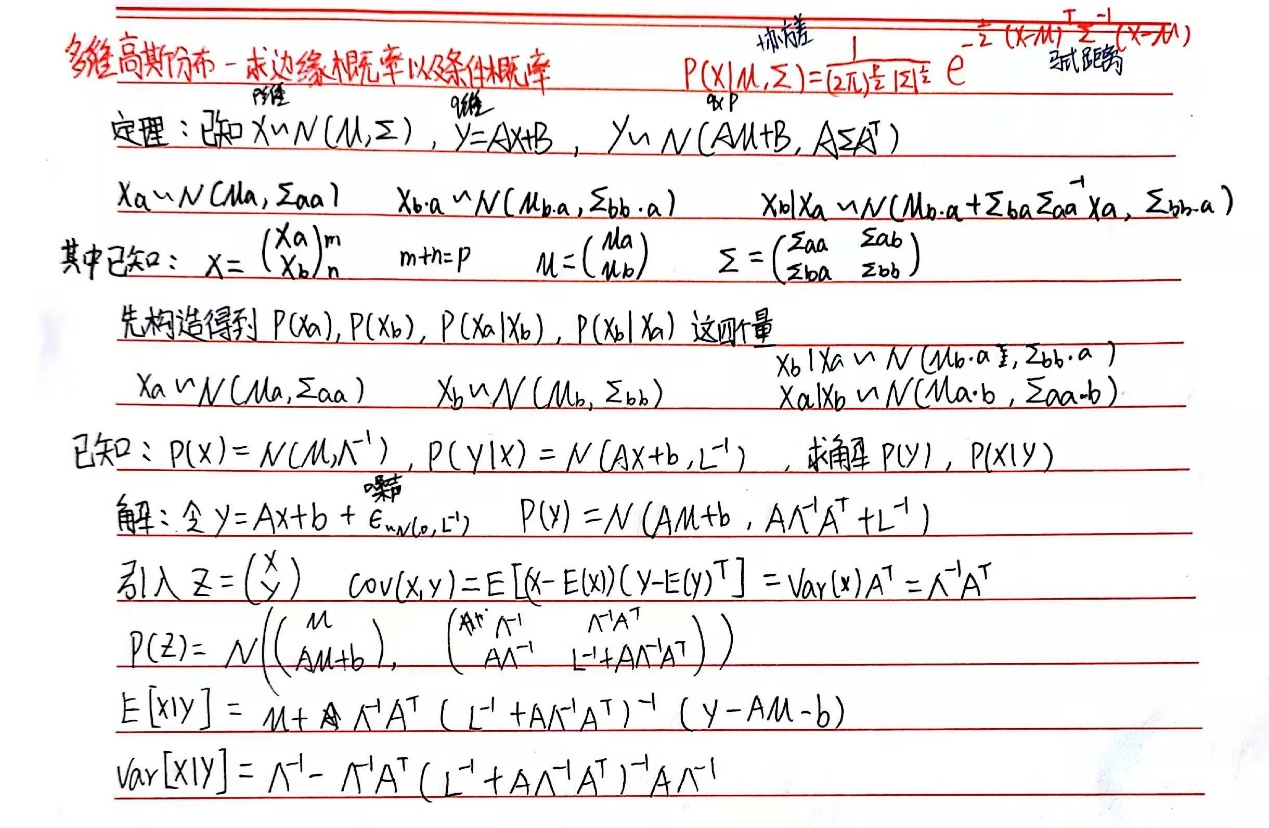 多维高斯分布-求边缘概率以及条件概率 P(X|μ,Σ)=1/((2π)^{p/2}|Σ|^{1/2}) e^{-1/2 (X-μ)^T Σ^{-1} (X-μ)}
协方差 马式距离
p维 q维 q×p
定理:已知X~N(μ,Σ),Y=AX+B,Y~N(Aμ+B,AΣA^T)
Xa~N(μa,Σaa) Xb·a~N(μb·a,Σbb·a) Xb|Xa~N(μb·a+ΣbaΣaa^{-1}Xa,Σbb·a)
其中已知:X=(Xa Xb) m n m+n=p μ=(μa μb) Σ=(Σaa Σab Σba Σbb)
先构造得到P(Xa),P(Xb),P(Xa|Xb),P(Xb|Xa)这四个量
Xb|Xa~N(μb·a,Σbb·a)
Xa~N(μa,Σaa) Xb~N(μb,Σbb) Xa|Xb~N(μa·b,Σaa·b)
已知:P(X)=N(μ,Λ^{-1}),P(Y|X)=N(AX+b,L^{-1}),求解P(Y),P(X|Y)
噪声
解:令Y=AX+b+ε~N(0,L^{-1}) P(Y)=N(Aμ+b,AΛ^{-1}A^T+L^{-1})
引入Z=(X Y) cov(X,Y)=E[(X-E(X))(Y-E(Y)^T]=Var(X)A^T=Λ^{-1}A^T
P(Z)=N((μ Aμ+b),(Λ^{-1} Λ^{-1}A^T AΛ^{-1} L^{-1}+AΛ^{-1}A^T))
E[X|Y]=μ+Λ^{-1}A^T(L^{-1}+AΛ^{-1}A^T)^{-1}(Y-Aμ-b)
Var[X|Y]=Λ^{-1}-Λ^{-1}A^T(L^{-1}+AΛ^{-1}A^T)^{-1}AΛ^{-1}